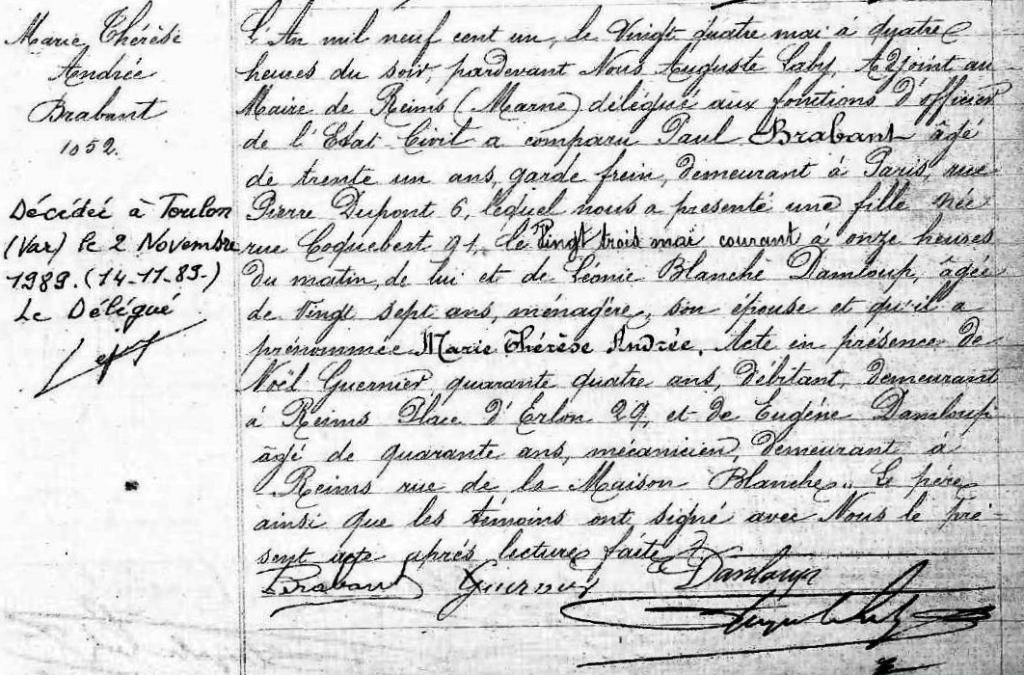 Marie Thérèse
Andrée
Brabant
1052.
Décédée à Toulon
(Var) le 2 Novembre
1989. (14-11-89-)
Le Délégué
L'An mil neuf cent un, le Vingt quatre mai à quatre
heures du soir, pardevant Nous Auguste Laby, Adjoint au
Maire de Reims (Marne) délégué aux fonctions d'officier
de l'Etat Civil a comparu Paul Brabant âgé
de trente un ans, garde frein, demeurant à Paris, rue
Pierre Dupont 6, lequel nous a présenté une fille née
rue Coquebert 91, le Vingt trois mai courant à onze heures
du matin, de lui et de Léonie Blanche Damloup, âgée
de Vingt sept ans, ménagère, son épouse et qu'il a
prénommée Marie Thérèse Andrée. Acte en présence de
Noël Guernier, quarante quatre ans, débitant, demeurant
à Reims Place d'Erlon 29, et de Eugène Damloup
âgé de quarante ans, mécanicien, demeurant à
Reims rue de la Maison Blanche. Le père
ainsi que les témoins ont signé avec Nous le pré-
sent acte après lecture faite
Brabant Guernier Damloup